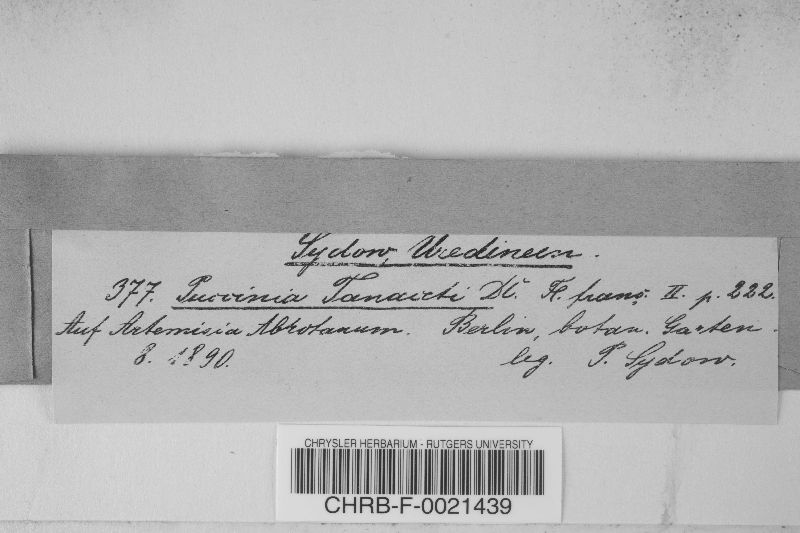 Sydow, Uredineen.
377. Puccinia Tanaceti DC. Fl. franç. II. p. 222.
Auf Artemisia Abrotanum. Berlin, botan. Garten.
8. 1890. leg. P. Sydow.
CHRYSLER HERBARIUM - RUTGERS UNIVERSITY
CHRB-F-0021439